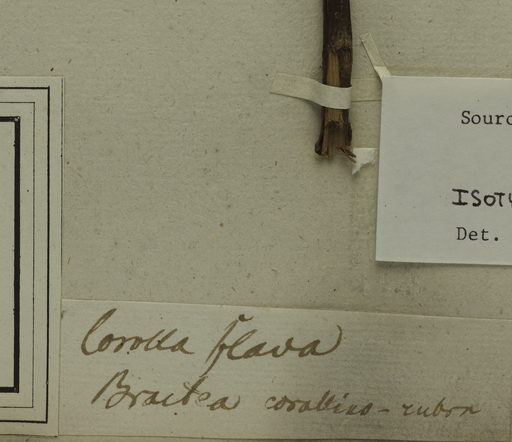 Sourc
ISOTY
Det.
Corolla flava
Bractea corallino-rubra